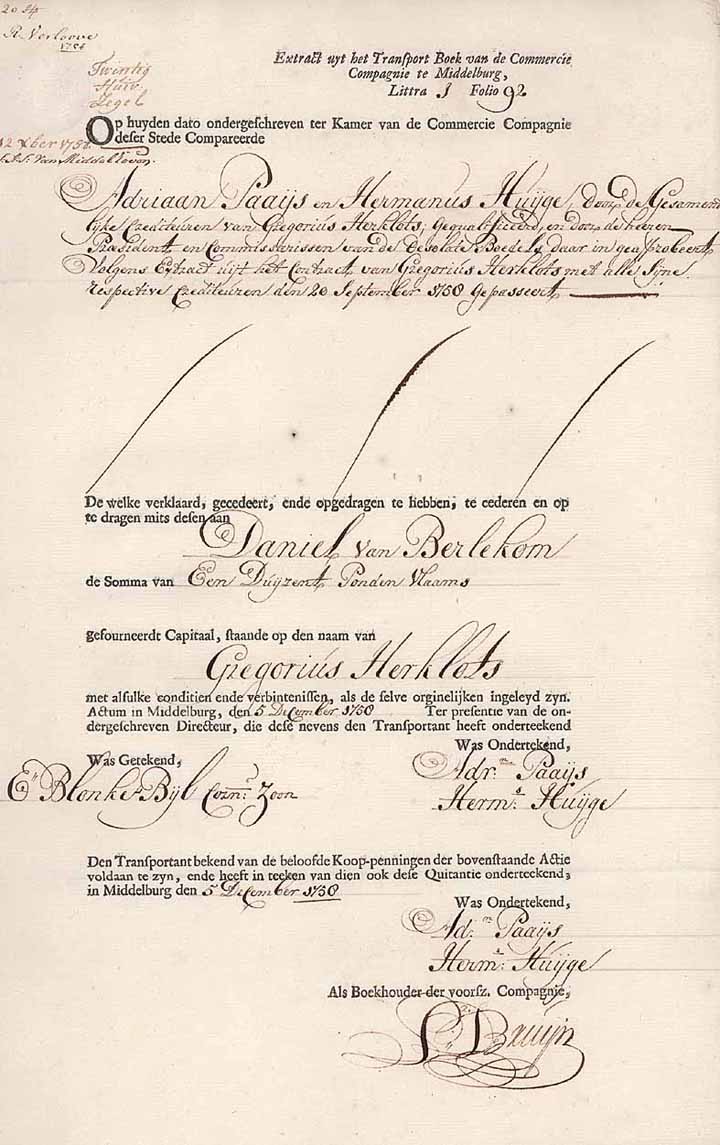 R. Verloove
1758
Twintig
Zegel
Extract uyt het Transport Boek van de Commercie
Compagnie te Middelburg,
Littra J Folio 92
Op huyden dato ondergeschreven ter Kamer van de Commercie Compagnie
deser Stede Compareerde
12 Xber 1758.
Adriaan Paaijs en Hermanus Huijge, door de Gesament
lijke Crediteuren van Gregorius Herklots, Gequalificeerd, en door de heeren
President en Commissarissen van de Desolate Boedels daar in geaprobeert
Volgens Extract uijt het Contract van Gregorius Herklots met alle Sijne
respective Crediteuren den 20 September 1758 Gepasseert
De welke verklaard, gecedeert, ende opgedragen te hebben, te cederen en op
te dragen mits desen aan
Daniel van Berlekom
de Somma van Een Duijzent Ponden Vlaams
gefourneerdt Capitaal, staande op den naam van
Gregorius Herklots
met alsulke conditien ende verbintenissen, als de selve orginelijken ingeleyd zyn.
Actum in Middelburg, den 5 December 1758 Ter presentie van de on-
dergeschreven Directeur, die dese nevens den Transportant heeft onderteekend
Was Ondertekend,
Was Getekend,
Adr.n Paaijs
Bijl Corn.s Zoon
Herm.s Huijge
Den Transportant bekend van de beloofde Koop-penningen der bovenstaande Actie
voldaan te zyn, ende heeft in teeken van dien ook dese Quitantie onderteekend;
in Middelburg den 5 December 1758
Was Ondertekend,
Ad.n Paaijs
Herm.s Huijge
Als Boekhouder der voorsz. Compagnie,
Bruijn